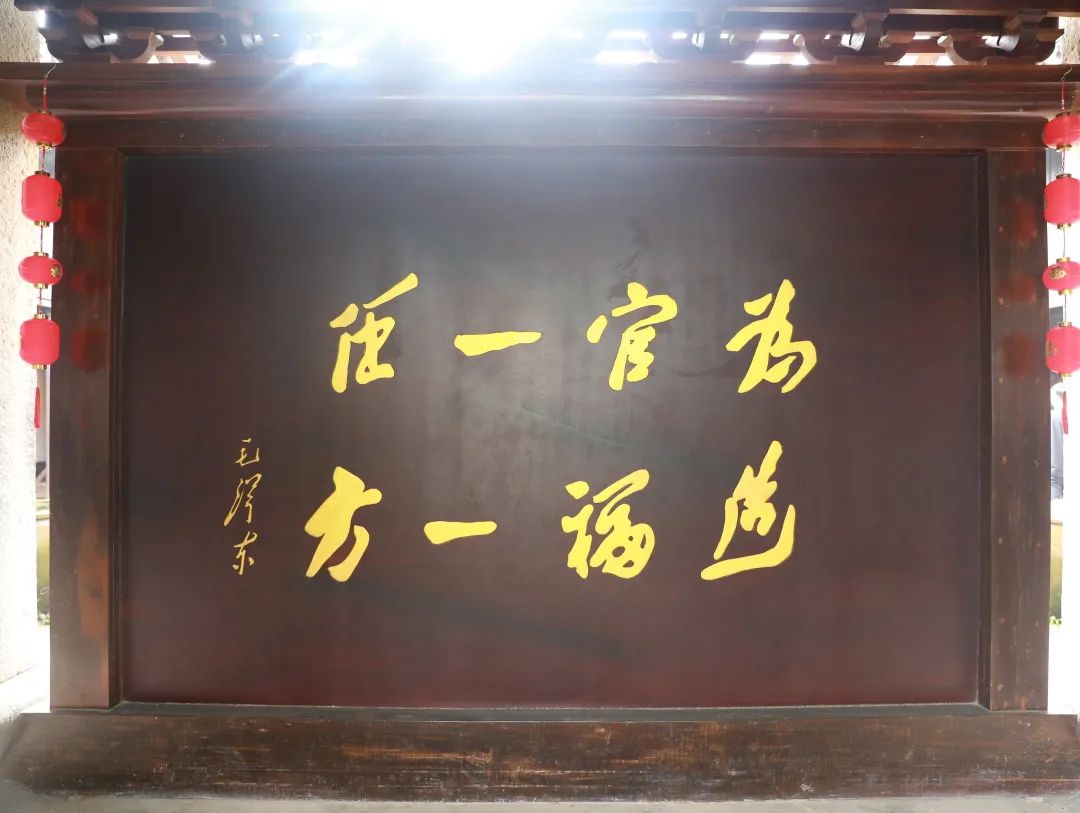 为官一任
造福一方
毛泽东